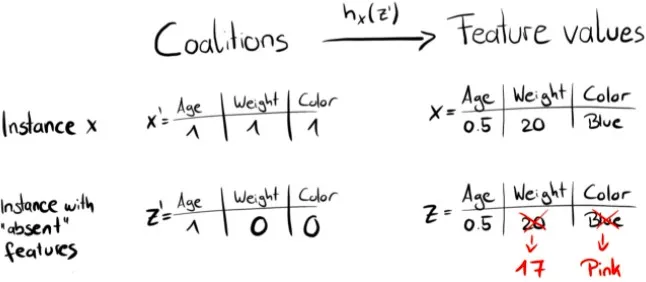 Coalitions hx(z') Feature values
Instance x x'= Age Weight Color x = Age Weight Color
1 1 1 0.5 20 Blue
Instance with "absent" features z'= Age Weight Color z = Age Weight Color
1 0 0 0.5 20 Blue
17 Pink